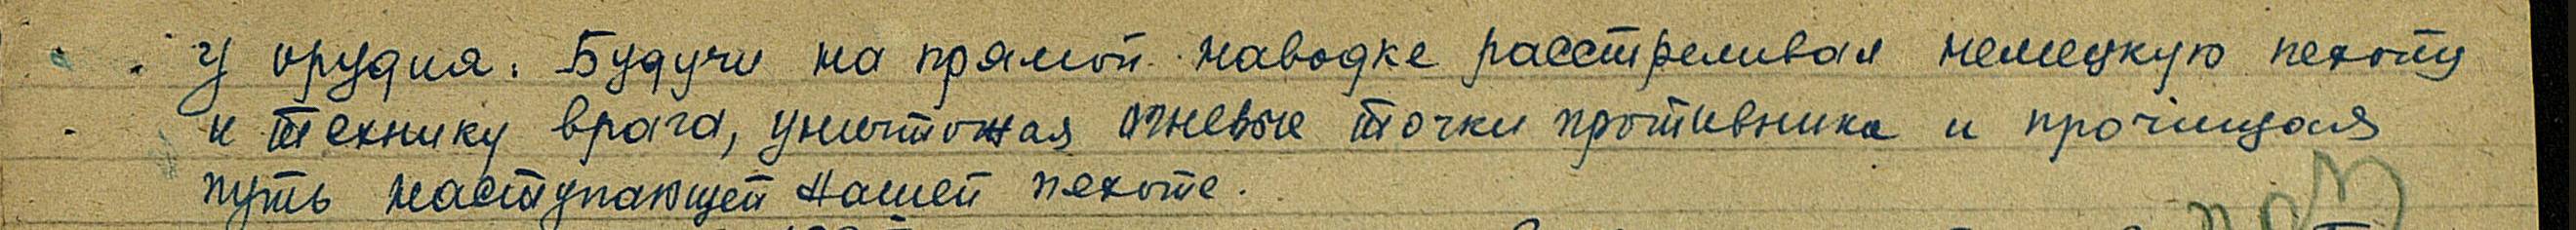 у орудия. Будучи на прямой наводке расстреливал немецкую пехоту
и технику врага, уничтожая огневые точки противника и прочищая
путь наступающей нашей пехоте.